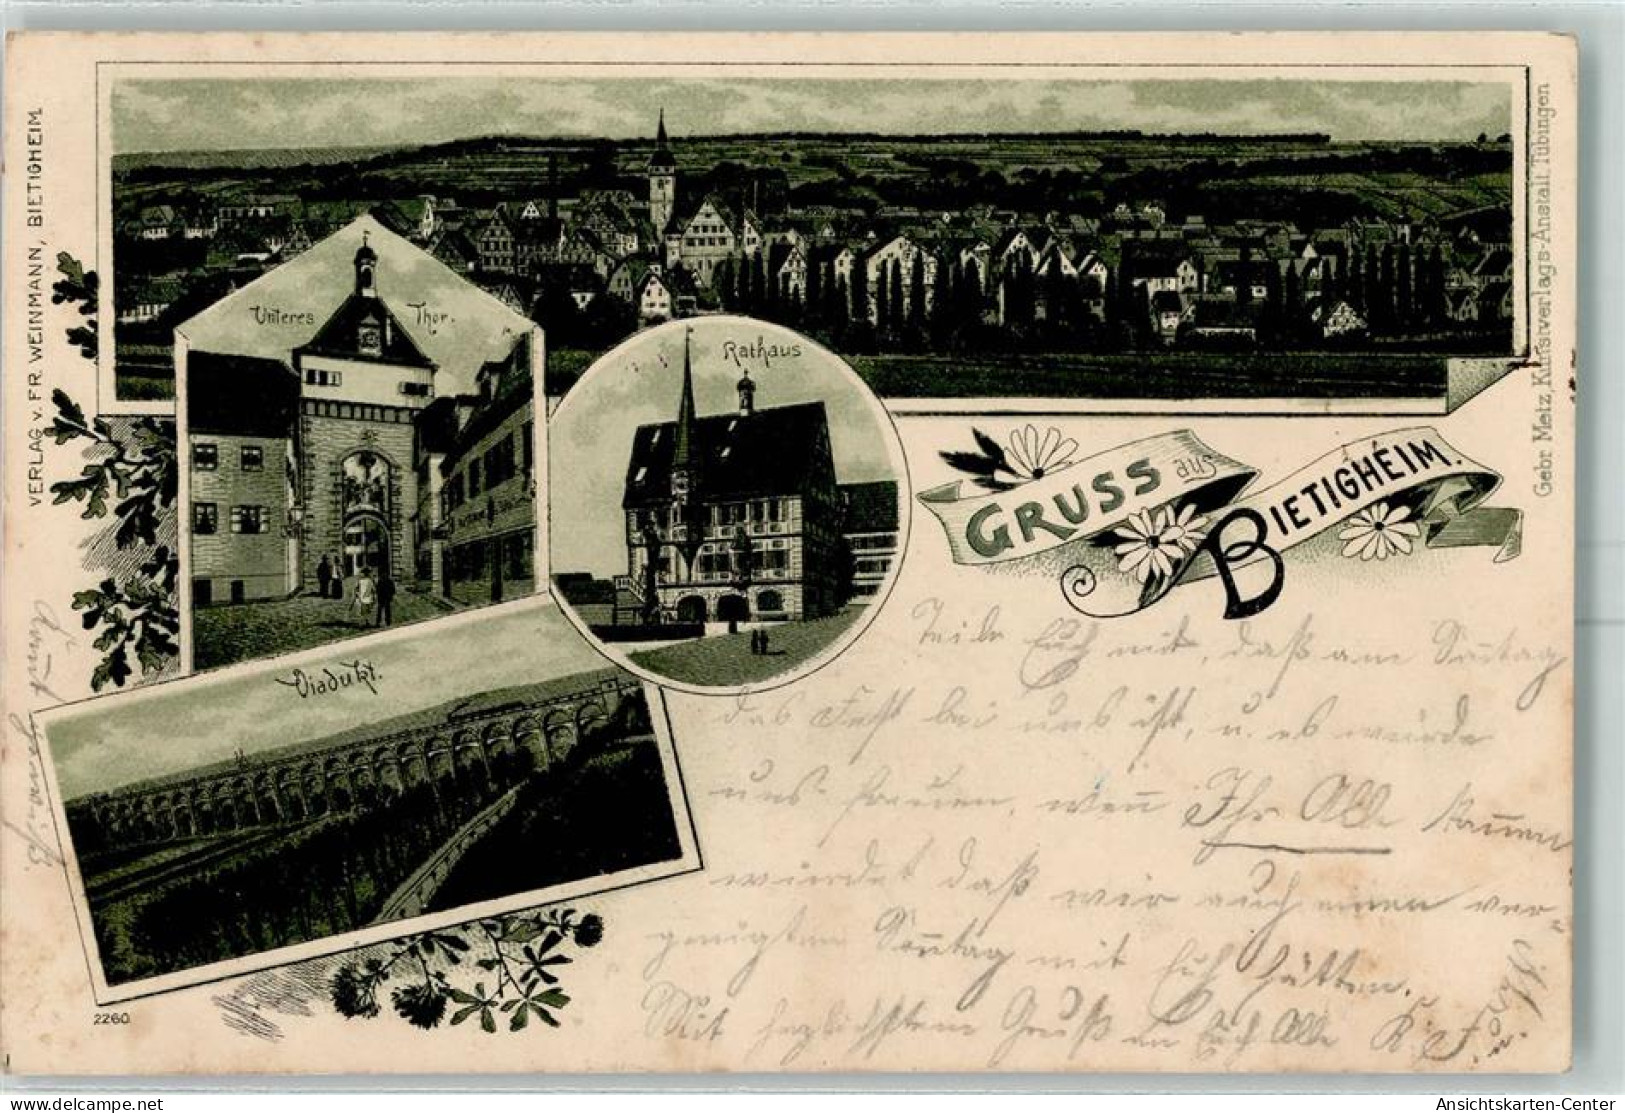 VERLAG v. FR. WEINMANN, BIETIGHEIM.
Gebr Metz, Kunstverlags-Anstalt, Tübingen
Unteres Thor.
Rathaus
GRUSS aus
BIETIGHEIM.
Viadukt.
Teile Euch mit, daß am Son̄tag
das Fest bei uns ist, u. es würde
uns freuen, wen̄ Ihr Alle kom̄en
würdet daß wir auch einen ver-
gnügten Son̄tag mit Euch hätten.
Mit herzlichstem Gruß an Euch Alle
2260
Ansichtskarten-Center